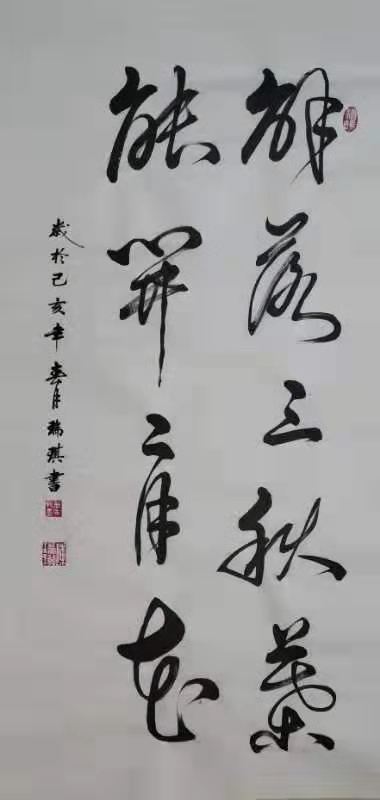 解落三秋葉
能開二月花
歲於己亥年春月瑞琪書